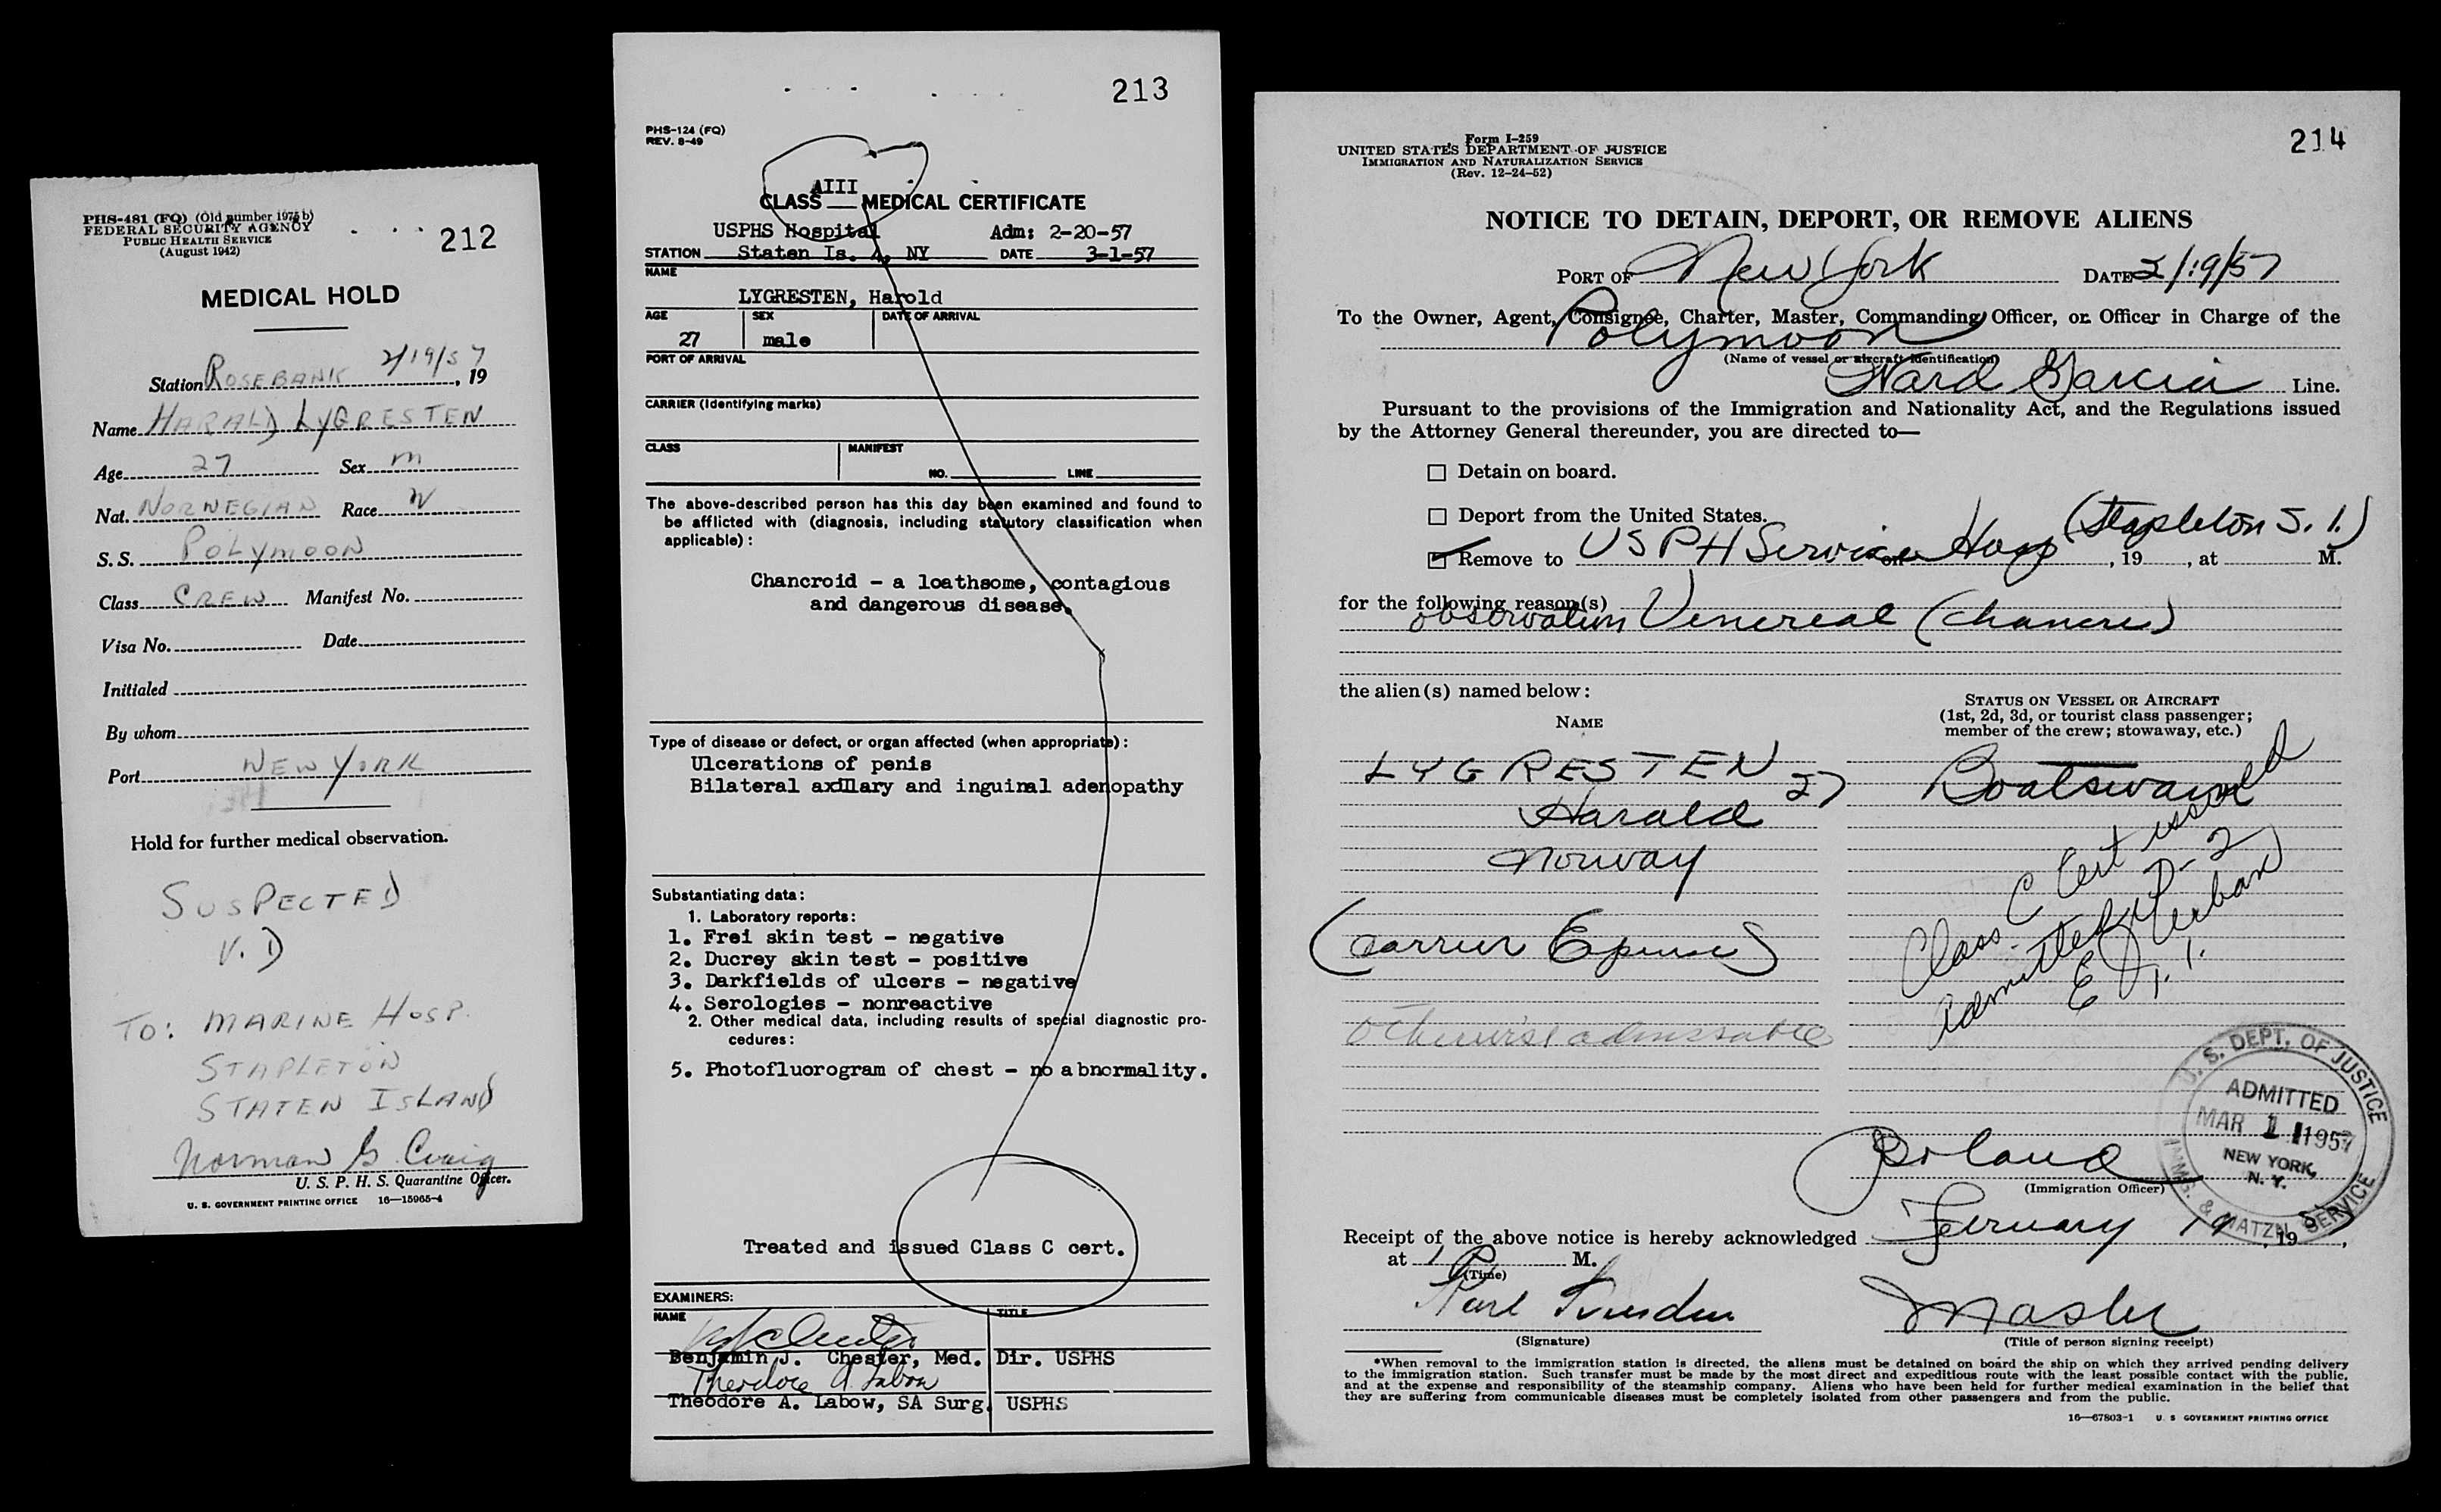 PHS-481 (FQ) (Old number 1975b)
FEDERAL SECURITY AGENCY
PUBLIC HEALTH SERVICE
(August 1942)
212
MEDICAL HOLD
Station ROSEBANK 2/19/57, 19
Name HARALD LYGRESTEN
Age 27 Sex m
Nat. NORWEGIAN Race W
S. S. POLYMOON
Class CREW Manifest No.
Visa No. Date
Initialed
By whom
Port NEW YORK
Hold for further medical observation.
SUSPECTED
V. D
TO: MARINE HOSP.
STAPLETON
STATEN ISLAND
Norman G. Craig
U. S. P. H. S. Quarantine Officer.
U. S. GOVERNMENT PRINTING OFFICE 16—15965-4
213
PHS-124 (FQ)
REV. 8-49
AIII
CLASS MEDICAL CERTIFICATE
USPHS Hospital Adm: 2-20-57
STATION Staten Is. 4, NY DATE 3-1-57
NAME
LYGRESTEN, Harold
AGE SEX DATE OF ARRIVAL
27 male
PORT OF ARRIVAL
CARRIER (Identifying marks)
CLASS MANIFEST
NO. LINE
The above-described person has this day been examined and found to
be afflicted with (diagnosis, including statutory classification when
applicable):
Chancroid - a loathsome, contagious
and dangerous disease.
Type of disease or defect, or organ affected (when appropriate):
Ulcerations of penis
Bilateral axillary and inguinal adenopathy
Substantiating data:
1. Laboratory reports:
1. Frei skin test - negative
2. Ducrey skin test - positive
3. Darkfields of ulcers - negative
4. Serologies - nonreactive
2. Other medical data, including results of special diagnostic pro-
cedures:
5. Photofluorogram of chest - no abnormality.
Treated and issued Class C cert.
EXAMINERS:
NAME TITLE
Benjamin J. Chester, Med. Dir. USPHS
Theodore A. Labow
Theodore A. Labow, SA Surg. USPHS
214
Form I-259
UNITED STATES DEPARTMENT OF JUSTICE
IMMIGRATION AND NATURALIZATION SERVICE
(Rev. 12-24-52)
NOTICE TO DETAIN, DEPORT, OR REMOVE ALIENS
PORT OF New York DATE 2/19/57
To the Owner, Agent, Consignee, Charter, Master, Commanding Officer, or Officer in Charge of the
Polymoon
(Name of vessel or aircraft identification)
Ward Garcia Line.
Pursuant to the provisions of the Immigration and Nationality Act, and the Regulations issued
by the Attorney General thereunder, you are directed to—
Detain on board.
Deport from the United States.
(Stapleton S. I.)
Remove to USPH Service Hosp on , 19 , at M.
for the following reason(s)
observation Venereal (chancre)
the alien(s) named below:
NAME
STATUS ON VESSEL OR AIRCRAFT
(1st, 2d, 3d, or tourist class passenger;
member of the crew; stowaway, etc.)
LYGRESTEN 27 Boatswain
Harald
Norway
Class C Cert issued
Admitted D-2
(Carrier Epense)
I. I.
otherwise admissable
U. S. DEPT. OF JUSTICE
ADMITTED
MAR 1 1957
NEW YORK,
N. Y.
IMMG. & NATZN. SERVICE
(Immigration Officer)
Receipt of the above notice is hereby acknowledged Feruary 19, 1957,
at 1 P M.
(Time)
Karl Master
(Signature) (Title of person signing receipt)
*When removal to the immigration station is directed, the aliens must be detained on board the ship on which they arrived pending delivery
to the immigration station. Such transfer must be made by the most direct and expeditious route with the least possible contact with the public,
and at the expense and responsibility of the steamship company. Aliens who have been held for further medical examination in the belief that
they are suffering from communicable diseases must be completely isolated from other passengers and from the public.
16—67803-1 U. S GOVERNMENT PRINTING OFFICE